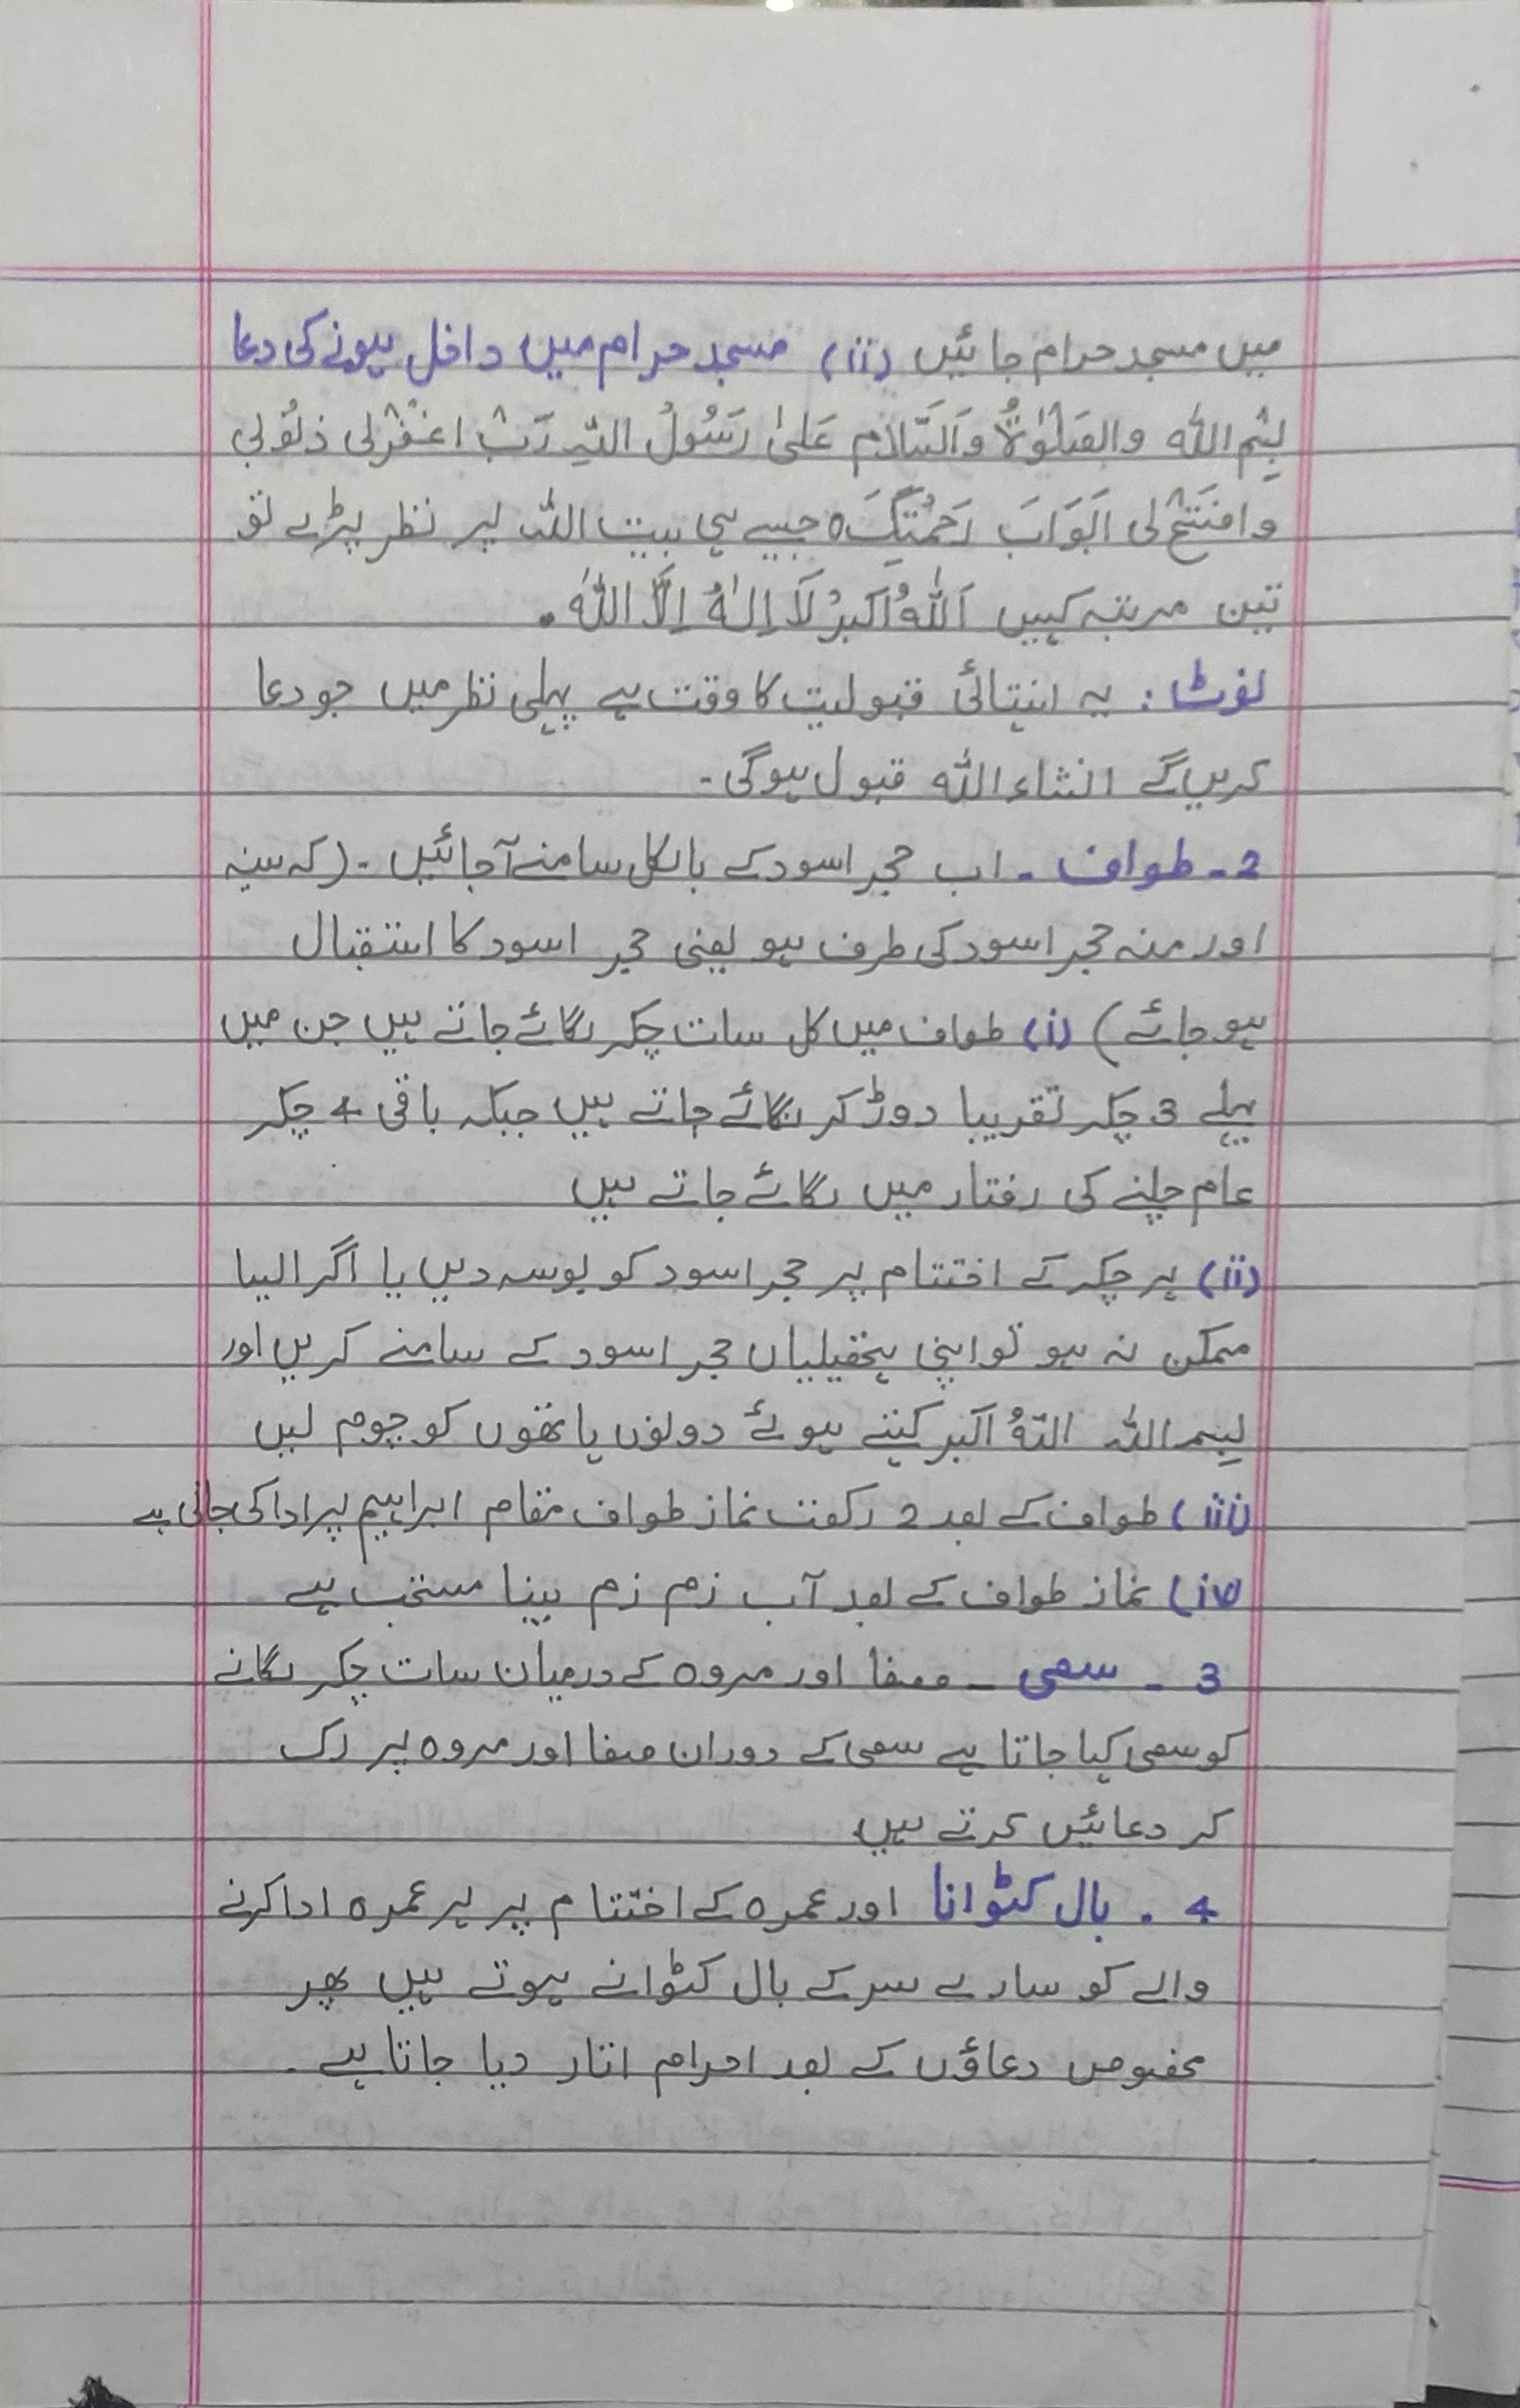 میں مسجد حرام جائیں (ii) مسجد حرام میں داخل ہونے کی دعا
بِسْمِ اللّٰہ والصَلٰوۃُ وَالسَّلَامُ عَلیٰ رَسُولُ اللّٰہِ رَبِّ اغْفْرلِی ذنُوبی
وافتَتحْ لی اَبَوَابَ رَحْمَتِکَ ہ جیسے ہی بیت اللہ پر نظر پڑے تو
تین مرتبہ کہیں اَللّٰہُ اَکبَرُ لَا اِلٰہُ اِلَّا اللّٰہ۔
نوٹ : یہ انتہائی قبولیت کا وقت ہے پہلی نظر میں جو دعا
کریں گے انشاء اللہ قبول ہوگی۔
2۔ طواف ۔ اب حجر اسود کے بالکل سامنے آجائیں ۔ (کہ سینہ
اور منہ حجر اسود کی طرف ہو یعنی حجر اسود کا استقبال
ہو جائے) (i) طواف میں کل سات چکر لگائے جاتے ہیں جن میں
پہلے 3 چکر تقریبا دوڑ کر لگائے جاتے ہیں جبکہ باقی 4 چکر
عام چلنے کی رفتار میں لگائے جاتے ہیں
(ii) ہر چکر کے اختتام پر حجر اسود کو بوسہ دیں یا اگر ایسا
ممکن نہ ہو تو اپنی ہتھیلیاں حجر اسود کے سامنے کریں اور
بِسم اللہ اللّٰہُ اکبر کہتے ہوئے دونوں ہاتھوں کو چوم لیں
(iii) طواف کے بعد 2 رکعت نماز طواف مقام ابراہیم پر ادا کی جاتی ہے
(iv) نماز طواف کے بعد آب زم زم پینا مستحب ہے
3 ۔ سعی ۔ صفا اور مروہ کے درمیان سات چکر لگانے
کو سعی کہا جاتا ہے سعی کے دوران صفا اور مروہ پر رک
کر دعائیں کرتے ہیں
4 ۔ بال کٹوانا اور عمرہ کے اختتام پر ہر عمرہ ادا کرنے
والے کو سارے سر کے بال کٹوانے ہوتے ہیں پھر
مخصوص دعاؤں کے بعد احرام اتار دیا جاتا ہے۔